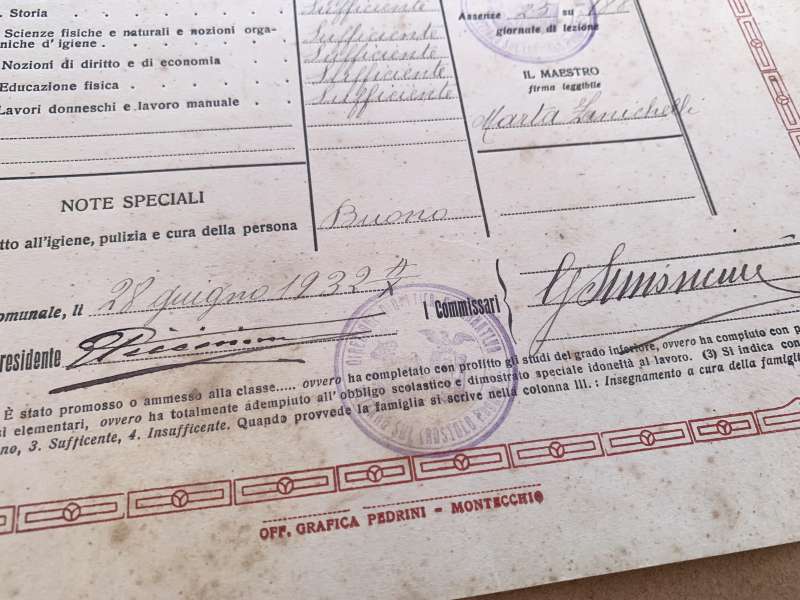 . Storia . . . . . . . Sufficiente
Scienze fisiche e naturali e nozioni orga-
niche d'igiene . . . . . . Sufficiente
Nozioni di diritto e di economia . . . Sufficiente
Educazione fisica . . . . . . Sufficiente
Lavori donneschi e lavoro manuale . . Sufficiente
Assenze 25 su
giornale di lezione
IL MAESTRO
firma leggibile
Marta Zanichelli
NOTE SPECIALI
tto all'igiene, pulizia e cura della persona Buono
omunale, li 28 giugno 1932 X
residente
i Commissari
È stato promosso o ammesso alla classe..... ovvero ha completato con profitto gli studi del grado inferiore, ovvero ha compiuto con p
si elementari, ovvero ha totalmente adempiuto all'obbligo scolastico e dimostrato speciale idoneità al lavoro. (3) Si indica con
no, 3. Sufficente, 4. Insufficente. Quando provvede la famiglia si scrive nella colonna III. : Insegnamento a cura della famiglia
OFF. GRAFICA PEDRINI - MONTECCHIO